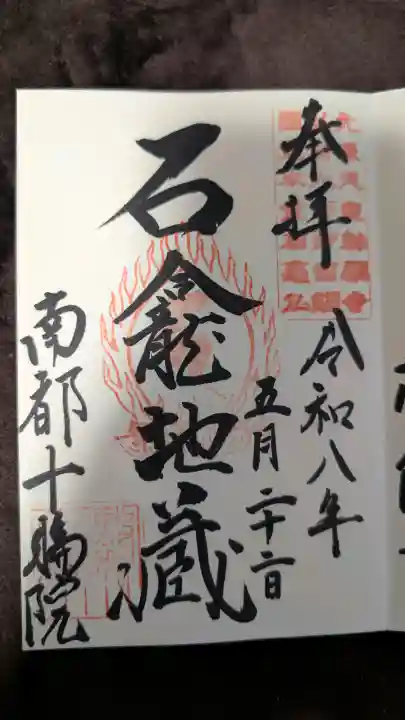 奉拝
令和八年
五月二十二日
石龕地蔵
南都十輪院